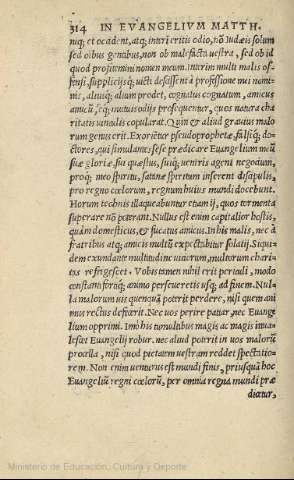 314 IN EVANGELIVM MATTH.
niq; et occident, atq; interi critis odio, nõ Iudæis solum
sed oĩbus gentibus, non ob malefacta vestra, sed ob id
quod profitemini nomen meum. Interim multi malis of-
fensi, supplicijsq; uicti desissent à professione mei nomi-
nis, aliusq; alium prodet, cognatus cognatum, amicus
amicũ, seq; mutuis odijs prosequentur, quos natura cha
ritatis uinculis copularat. Quin et aliud grauius malo
rum genus erit. Exorientur pseudoprophetæ, falsiq; do-
ctores, qui simulantes se se prædicare Euangelium meũ
suæ gloriæ, suo quæstui, suiq; ventris agent negocium,
proq; meo spiritu, satanæ spiritum inserent discipulis,
pro regno cœlorum, regnum huius mundi docebunt.
Horum technis illaqueabuntur etiam ij, quos tormenta
superare nõ poterant. Nullus est enim capitalior hostis,
quàm domesticus, & fucatus amicus. In his malis, nec à
fratribus atq; amicis multũ expectabitur solatij. Siqui-
dem exundante multitudine vitiorum, multorum chari-
tas refrigescet. Vobis tamen nihil erit periculi, modo
constanti fortiq; animo perseueretis usq; ad finem. Nul-
la malorum uis quenquã poterit perdere, nisi quem ani
mus rectus deserit. Nec uos perire patiar, nec Euange
lium opprimi. Imò his tumultibus magis ac magis inua-
lescet Euangelij robur. nec aliud poterit in uos malorũ
procella, nisi quod pietatem uestram reddet spectatio-
rem. Non enim uenturus est mundi finis, priusquã hoc
Euangeliũ regni cœlorũ, per omnia regna mundi præ
dicetur,
Ministerio de Educación, Cultura y Deporte